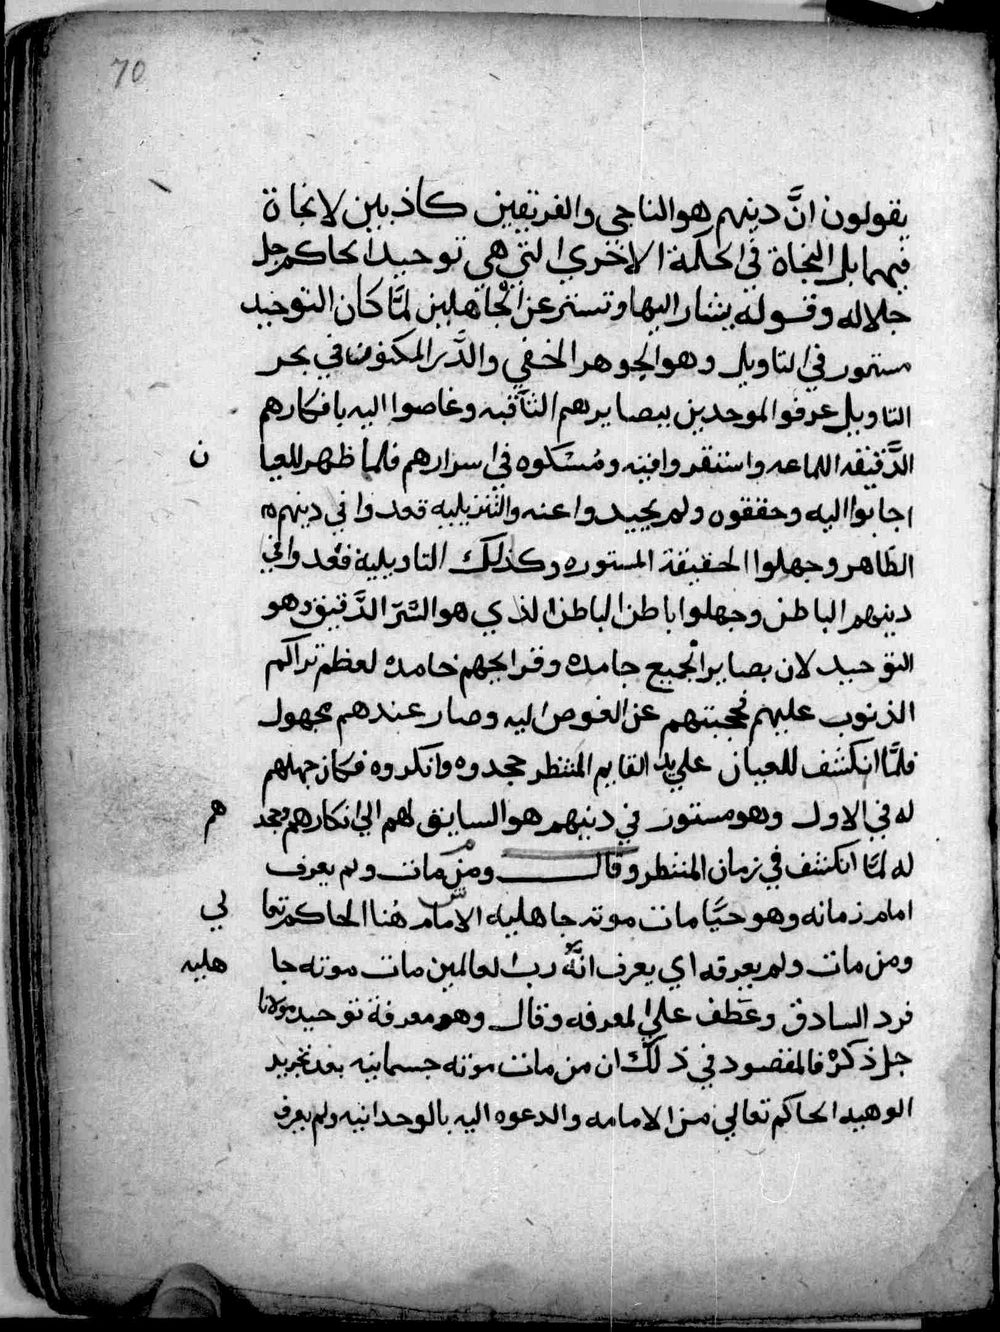 70
يقولون انَّ دينهم هو الناجي والفريقين كاذبين لا نجاة
فيهما بل النجاة في الحلّة الاخري التي هي توحيد الحاكم جل
جلاله وقوله يشار اليها وتستر عن الجاهلين لمَّا كان التوحيد
مستور في التاويل وهو الجوهر الخفي والدّر المكنون في بحر
التاويل عرفوا الموحدين ببصايرهم الثاقبه وغاصوا اليه بافكارهم
الدَّقيقه اللماعه واستقروا فيه ومُسّكوه في اسرارهم فلما ظهر للعيا ن
اجابوا اليه وحققوه ولم يحيدوا عنه والتنزيليه قعدوا في دينهم
الظاهر وجهلوا الحقيقة المستوره وكذلك التاويلية فقعدوا في
دينهم الباطن وجهلوا باطن الباطن الذي هو السّرّ الدَّقيق وهو
التوحيد لان بصاير الجميع جامده وقرايحهم خامده لعظم تراكم
الذنوب عليهم فحجبتهم عن الغوص اليه وصار عندهم مجهول
فلمَّا انكشف للعيان علي يد القايم المنتظر جحدوه وانكروه فكان جهلهم
له في الاول وهو مستور في دينهم هو السايق لهم الي انكارهم وجحد هم
له لمَّا انكشف في زمان المنتظر وقال ومن مات ولم يعرف
امام زمانه وهو حيًّا مات موته جاهليه الامام هُنا الحاكم تعا لي
ومن مات ولم يعرفه اي يعرف انَّه رب العالمين مات موته جا هليه
فرد السادق وعَطف علي المعرفه وقال وهو معرفة توحيد مولانا
جل ذكره فالمقصود في ذلك ان من مات موته جسمانيه بعد تجريد
الوهيه الحاكم تعالي من الامامه والدعوه اليه بالوحدانيه ولم يعرف